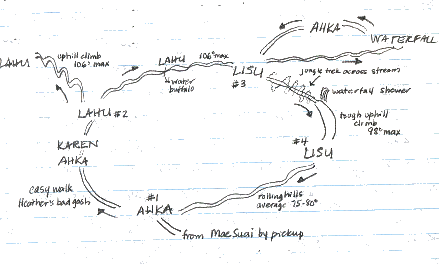 AHKA
WATERFALL
LAHU
uphill climb
106° max
LAHU
106° max
water
buffalo
LISU
#3
jungle tick across stream
waterfall shower
tough uphill
climb
98° max
LAHU #2
KAREN
AHKA
#4
LISU
easy walk
Heather's bad gash
#1
AHKA
rolling hills
average 75-80°
from Mae Suai by pickup